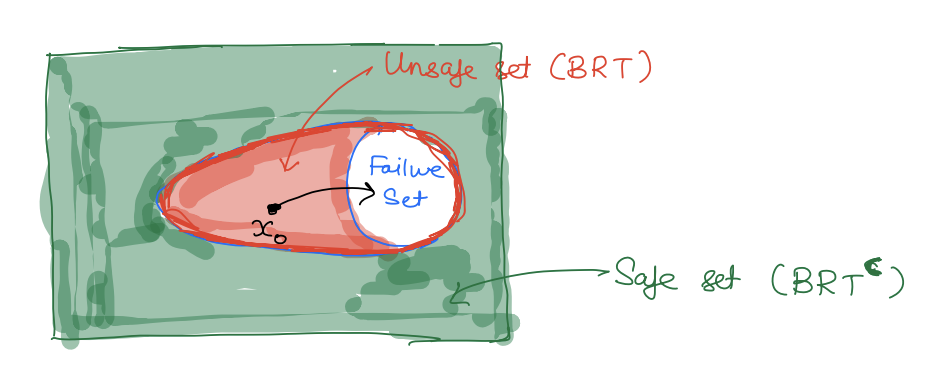 Unsafe set (BRT)
Failure
Set
x₀
Safe set (BRTᶜ)